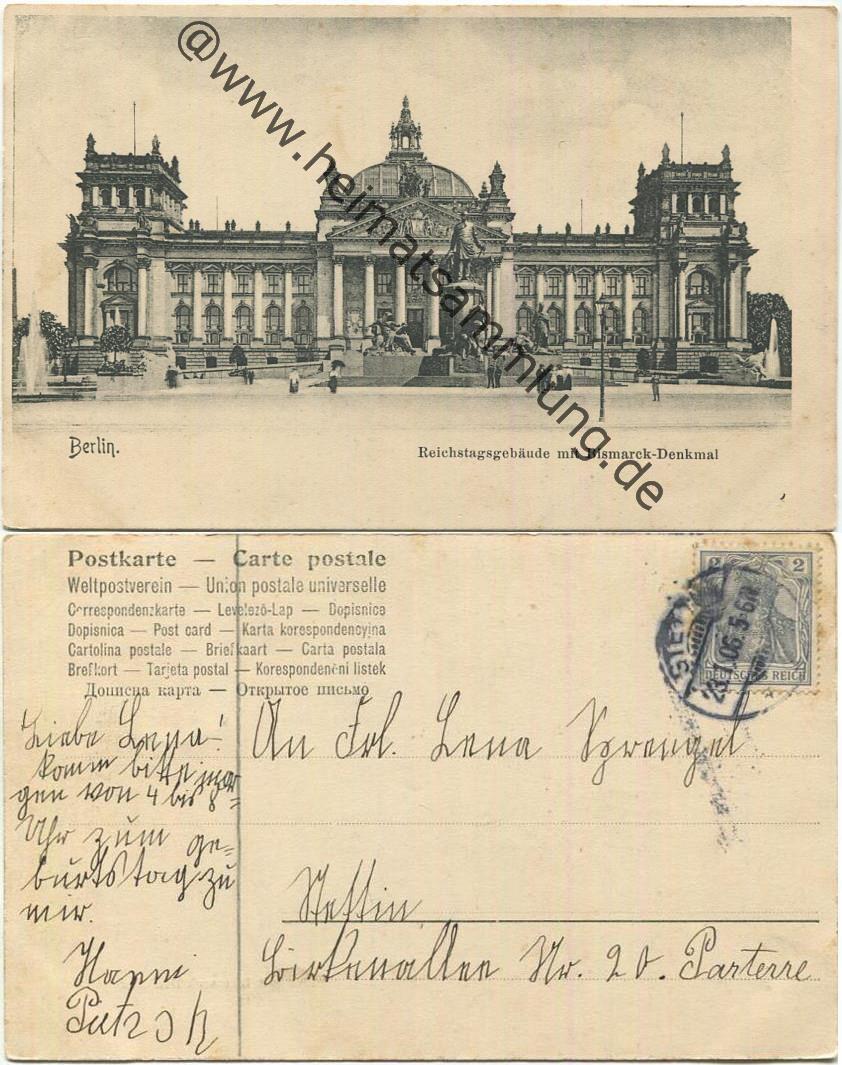 @www.heimatsammlung.de
Berlin.
Reichstagsgebäude mit Bismarck-Denkmal
Postkarte — Carte postale
Weltpostverein — Union postale universelle
Correspondenzkarte — Levelező-Lap — Dopisnice
Dopisnica — Post card — Karta korespondencyjna
Cartolina postale — Briefkaart — Carta postala
Brefkort — Tarjeta postal — Korespondenčni listek
Дописна карта — Открытое письмо
2 2
DEUTSCHES REICH
23.1.06. 5-6N
Liebe Lena!
komm bitte mor
gen von 4 bis 8=
Uhr zum ge=
burtstag zu
mir.
Hanni
An Frl. Lena Sprengel
Stettin
Birkenallee Nr. 20. Parterre